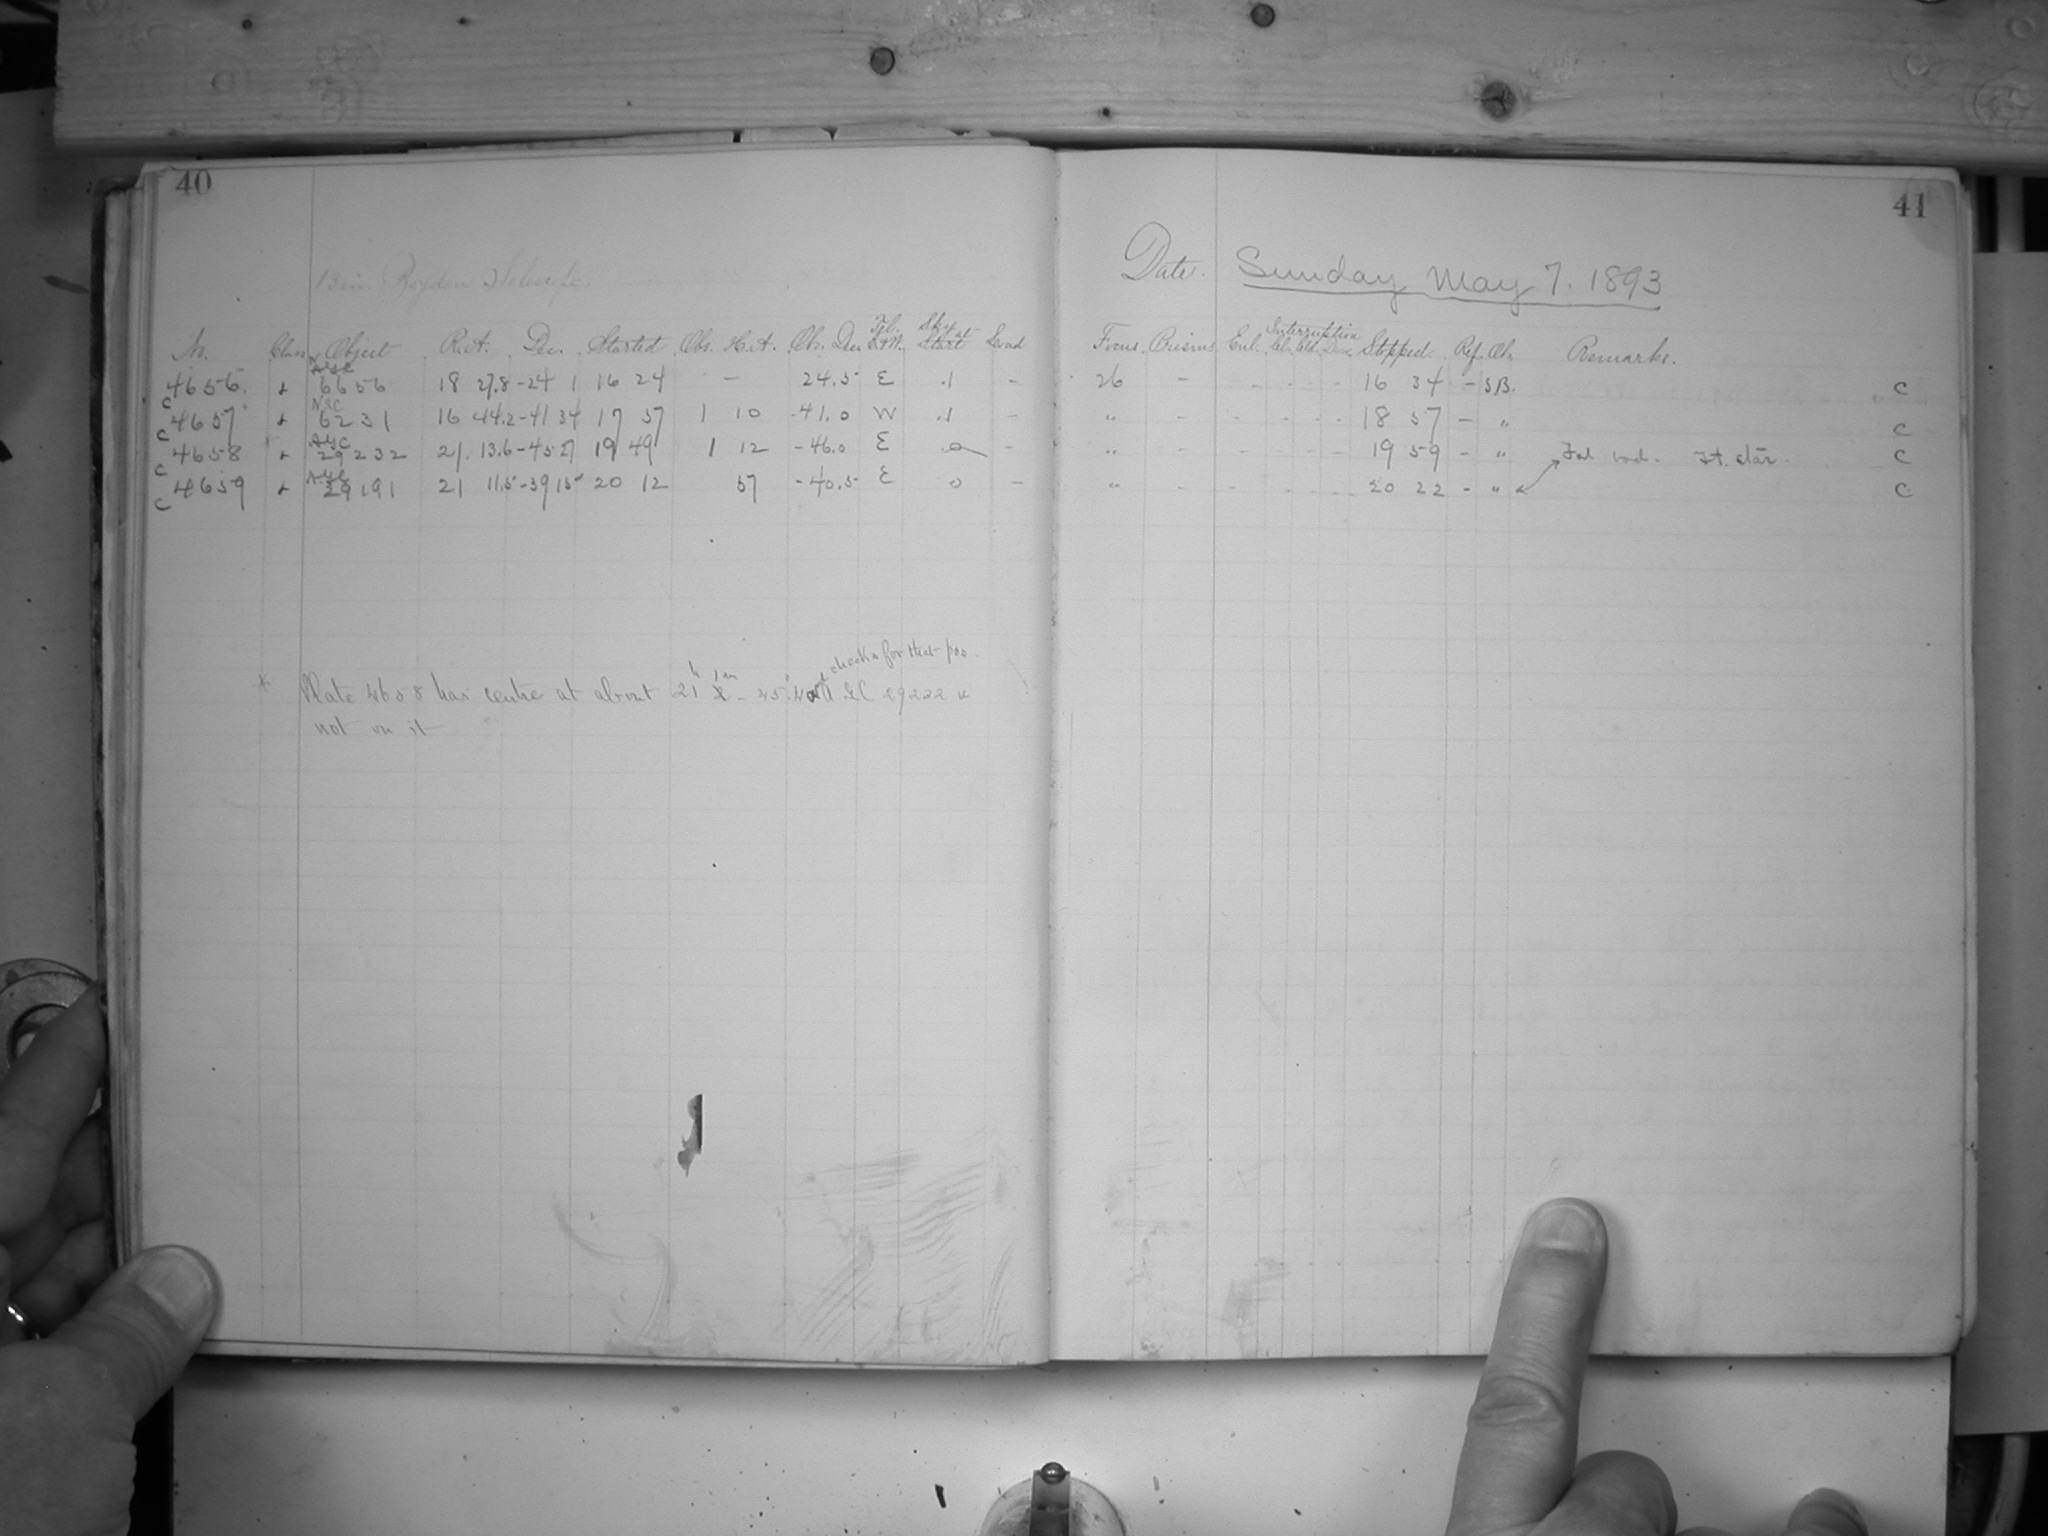 40
41
13 in. Boyden Telescope.
Date. Sunday May 7. 1893
No. Class Object R.A. Dec. Started Obs. H.A. Obs. Dec. Tel. E.orW. Sky at Start Focus Prisms Interruption Stopped Ref. Ob. Remarks.
4656. 6656 18 27.8 -24 1 16 24 - 24.5 E .1 - 26 - - - - - 16 34 - SB. C
C 4657 NGC 6231 16 44.2 -41 34 17 57 1 10 -41.0 W .1 - " - - - - - 18 57 - " C
C 4658 29232 21. 13.6 -45 27 19 49 1 12 -46.0 E 0 - " - - - - - 19 59 - " C
C 4659 29191 21 11.5 -39 15 20 12 57 -40.5 E 0 - " - - - - - 20 22 - " C
C
check for that pos.
* Plate 4658 has centre at about 21h
not on it